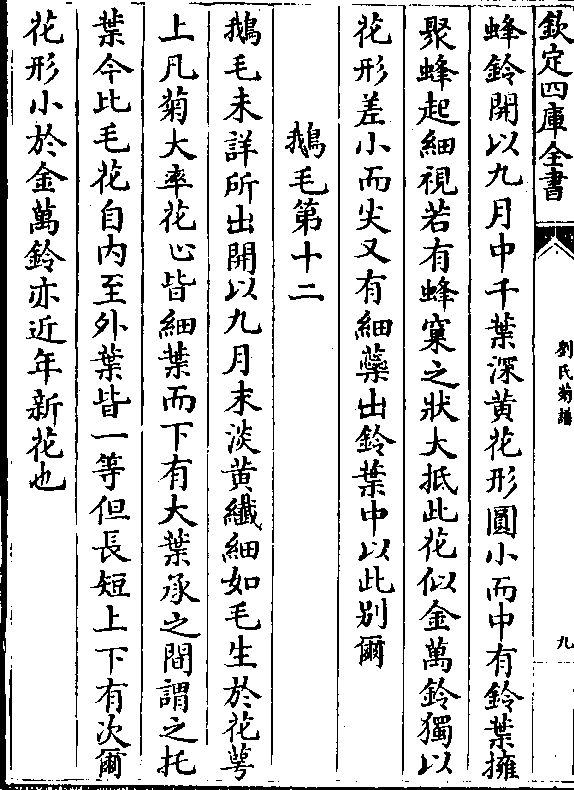 欽定四庫全書
劉氏菊譜
九
蜂鈴開以九月中千葉深黄花形圓小而中有鈴葉擁
聚蜂起細視若有蜂窠之狀大抵此花似金萬鈴獨以
花形差小而尖又有細蘂出鈴葉中以此别爾
鵝毛第十二
鵝毛未詳所出開以九月末淡黄纎細如毛生於花萼
上凡菊大率花心皆細葉而下有大葉承之間謂之托
葉今比毛花自内至外葉皆一等但長短上下有次爾
花形小於金萬鈴亦近年新花也